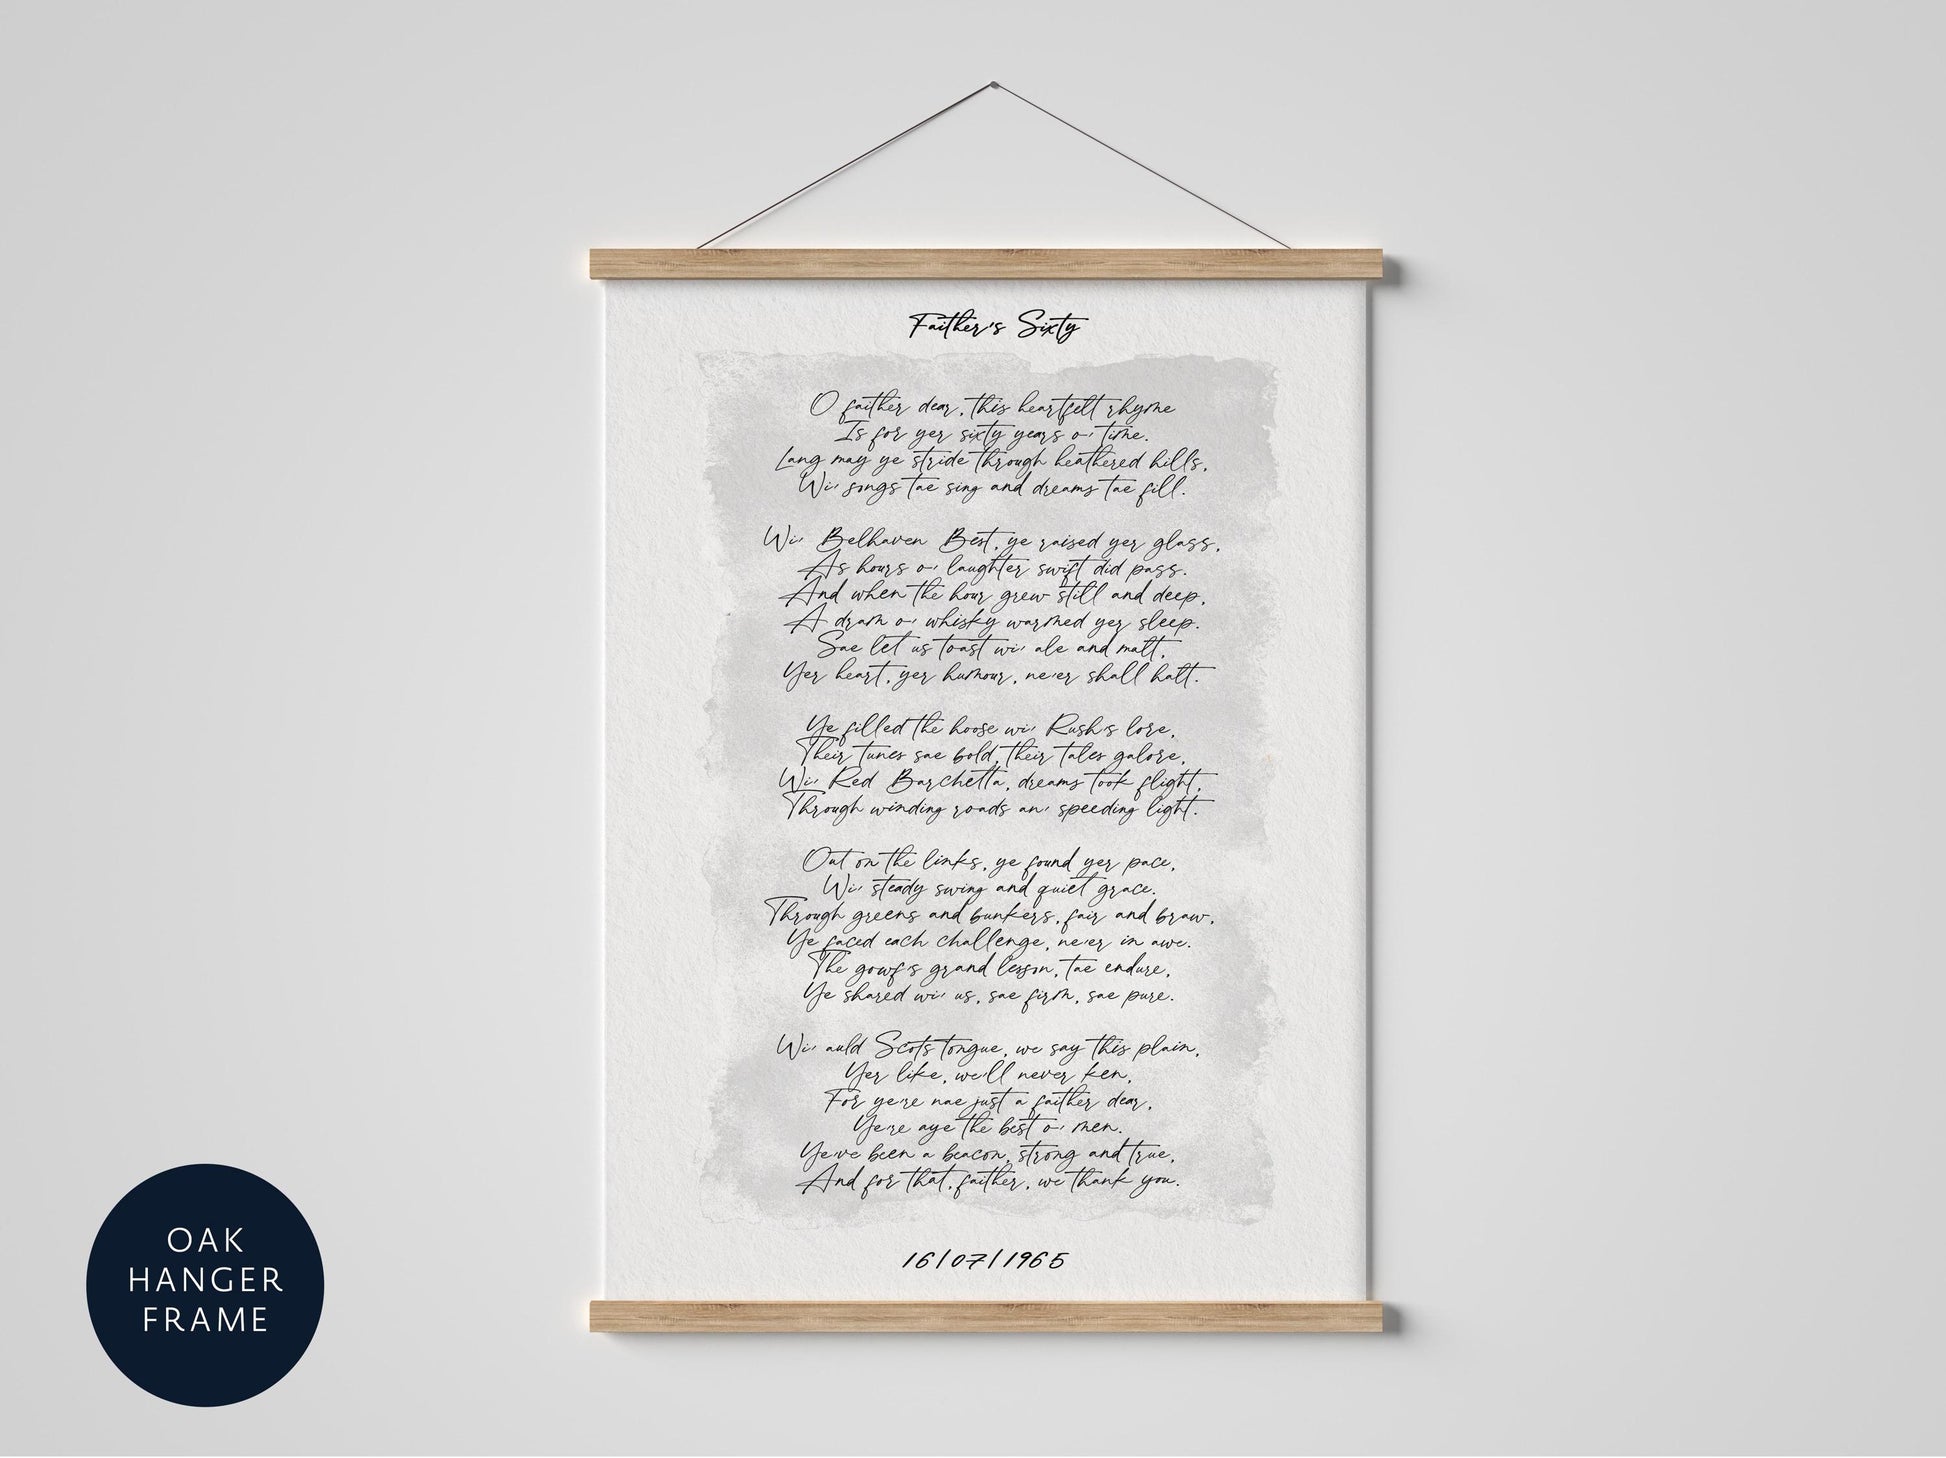 Faither's Sixty
O faither dear, this heartfelt rhyme
Is for yer sixty years o' time.
Lang may ye stride through heathered hills,
Wi' songs tae sing and dreams tae fill.
Wi' Belhaven Best, ye raised yer glass,
As hours o' laughter swift did pass.
And when the hour grew still and deep,
A dram o' whisky warmed yer sleep.
Sae let us toast wi' ale and malt,
Yer heart, yer humour, ne'er shall halt.
Ye filled the hoose wi' Rush's lore,
Their tunes sae bold, their tales galore,
Wi' Red Barchetta, dreams took flight,
Through winding roads an' speeding light.
Out on the links, ye found yer pace,
Wi' steady swing and quiet grace.
Through greens and bunkers, fair and braw,
Ye faced each challenge, ne'er in awe.
The gowf's grand lesson, tae endure,
Ye shared wi' us, sae firm, sae pure.
Wi' auld Scots tongue, we say this plain,
Yer like, we'll never ken,
For ye're nae just a faither dear,
Ye're aye the best o' men.
Ye've been a beacon, strong and true,
And for that, faither, we thank you.
16/07/1965
OAK
HANGER
FRAME